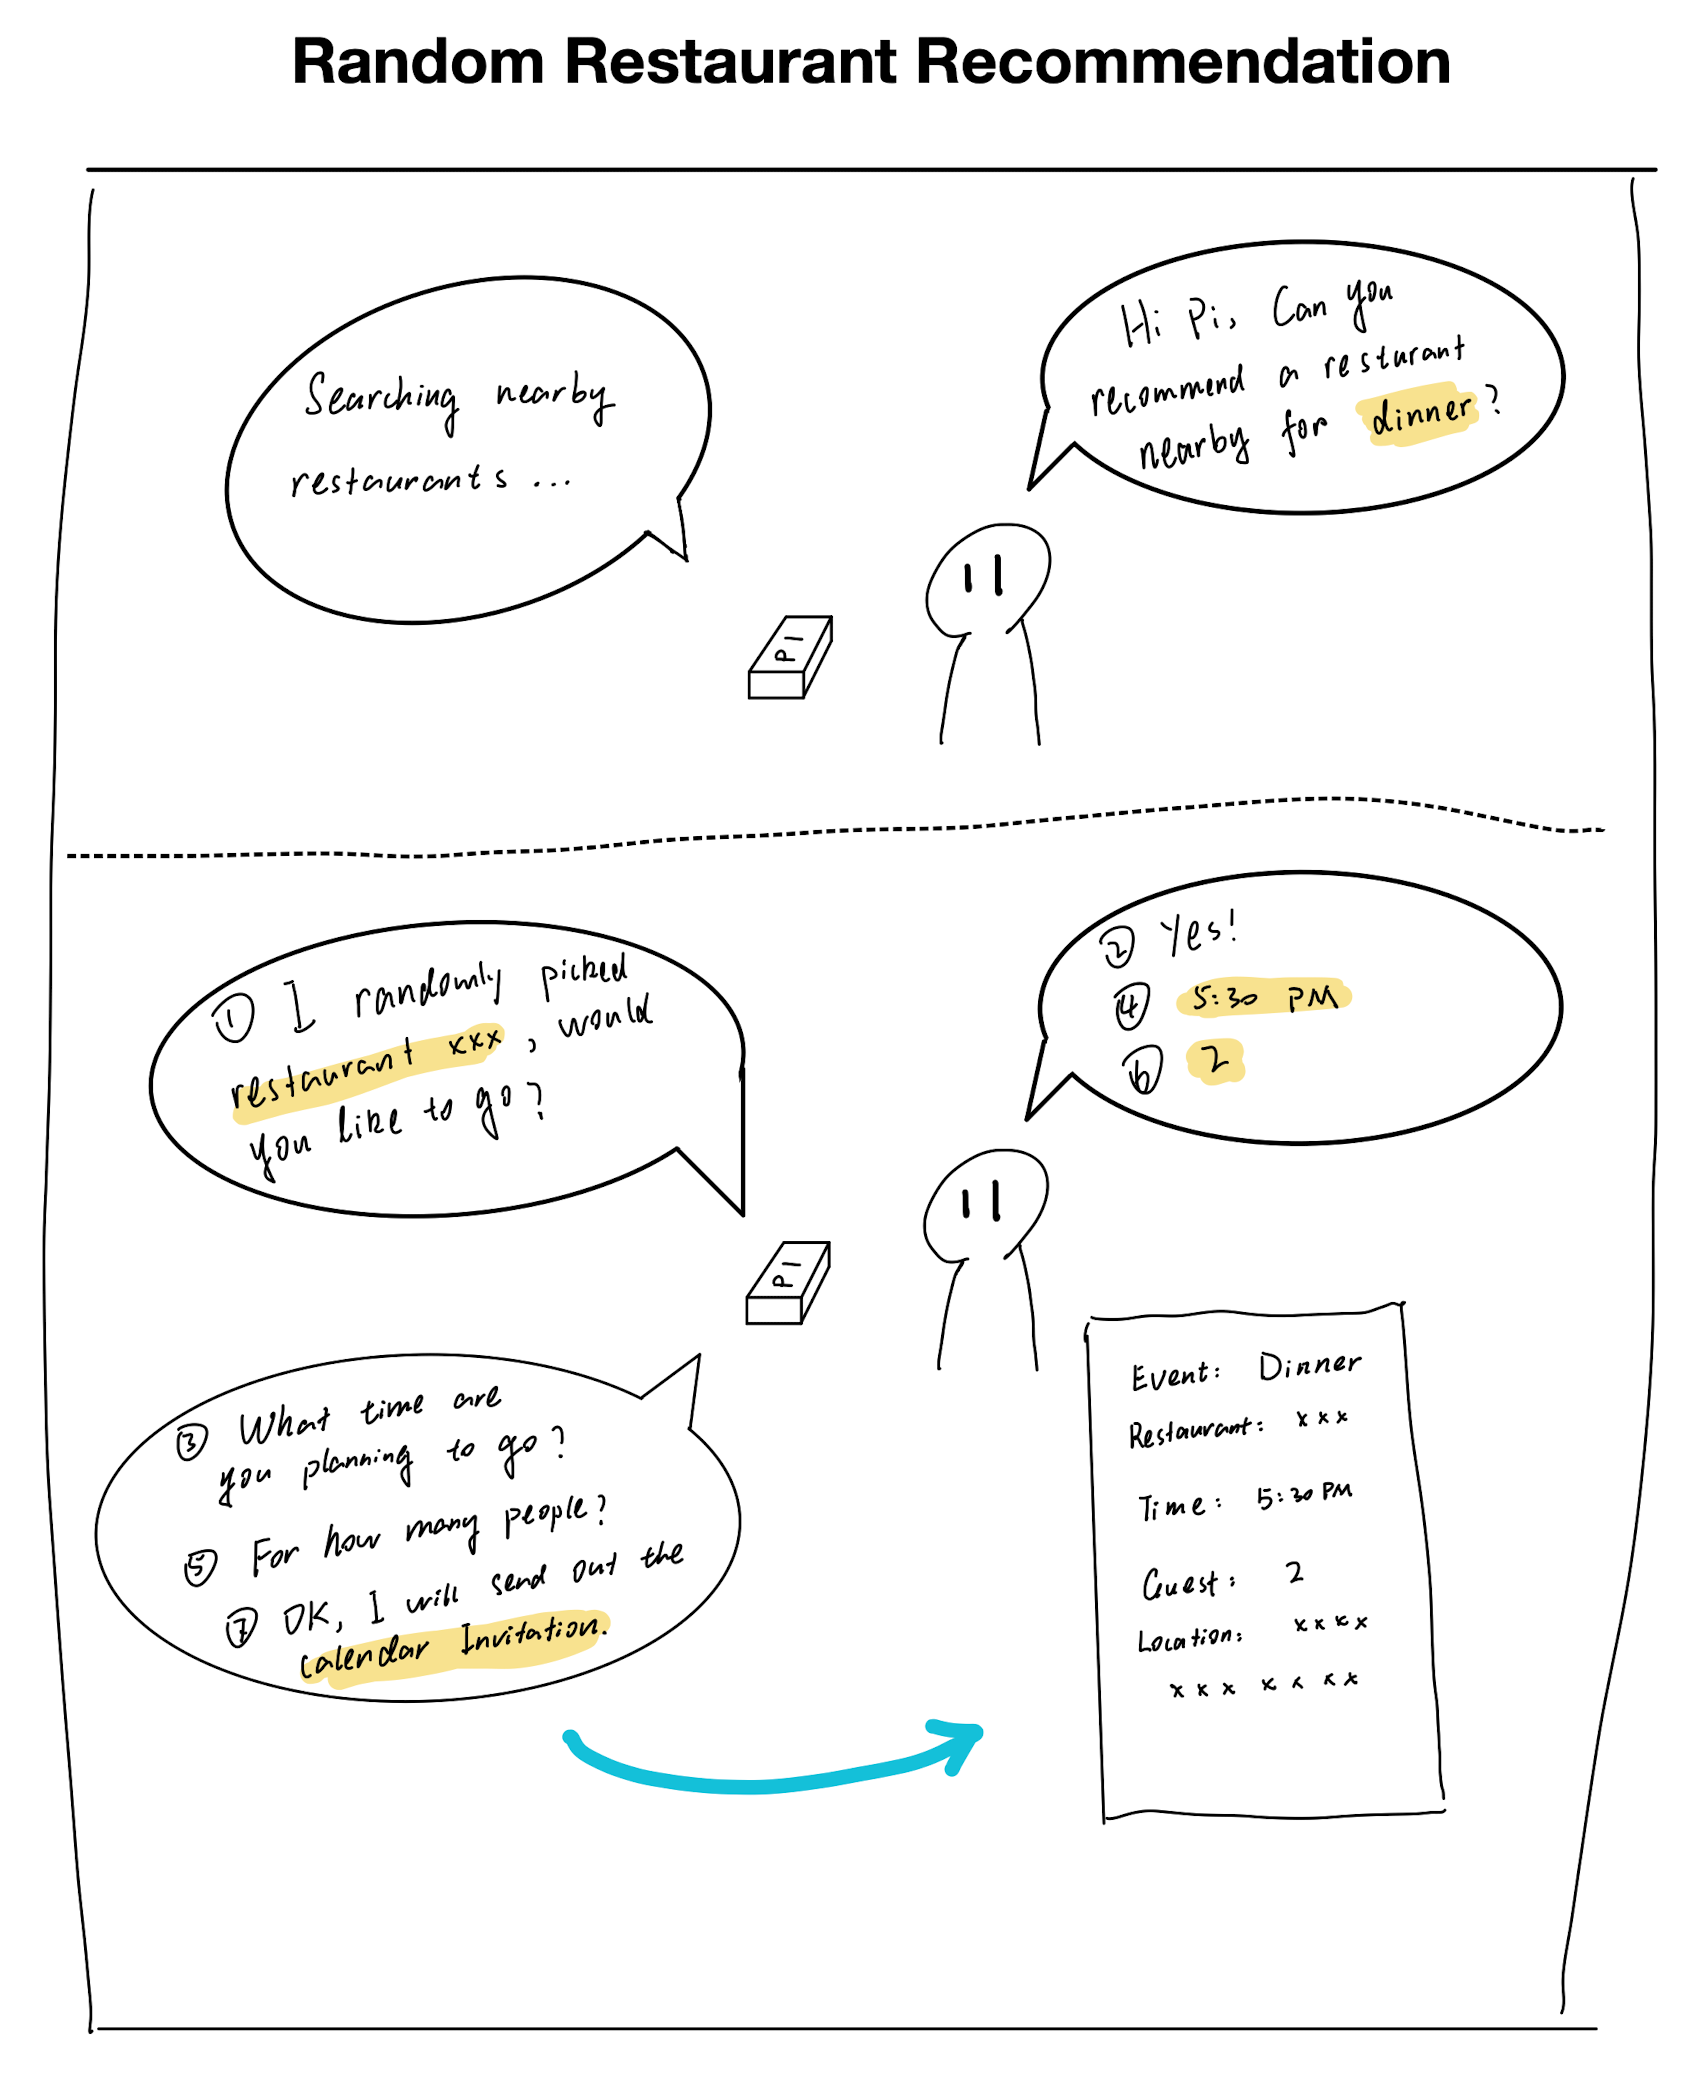 Random Restaurant Recommendation
Searching nearby
restaurants ...
Hi Pi, Can you
recommend a resturant
nearby for dinner?
PI
① I randomly picked
restaurant xxx, would
you like to go?
② Yes!
④ 5:30 PM
⑥ 2
PI
③ What time are
you planning to go?
⑤ For how many people?
⑦ OK, I will send out the
calendar Invitation.
Event: Dinner
Restaurant: xxx
Time: 5:30 PM
Guest: 2
Location: xxxx
xxx xxxx